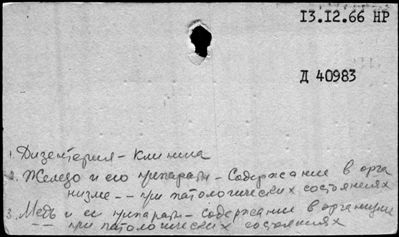 13.12.66 НР
Д 40983
1. Дизентерия – Клиника
2. Железо и его препараты – Содержание в орга
низме – – при патологических состояниях
3. Медь и ее препараты – Содержание в организме
– – при патологических состояниях